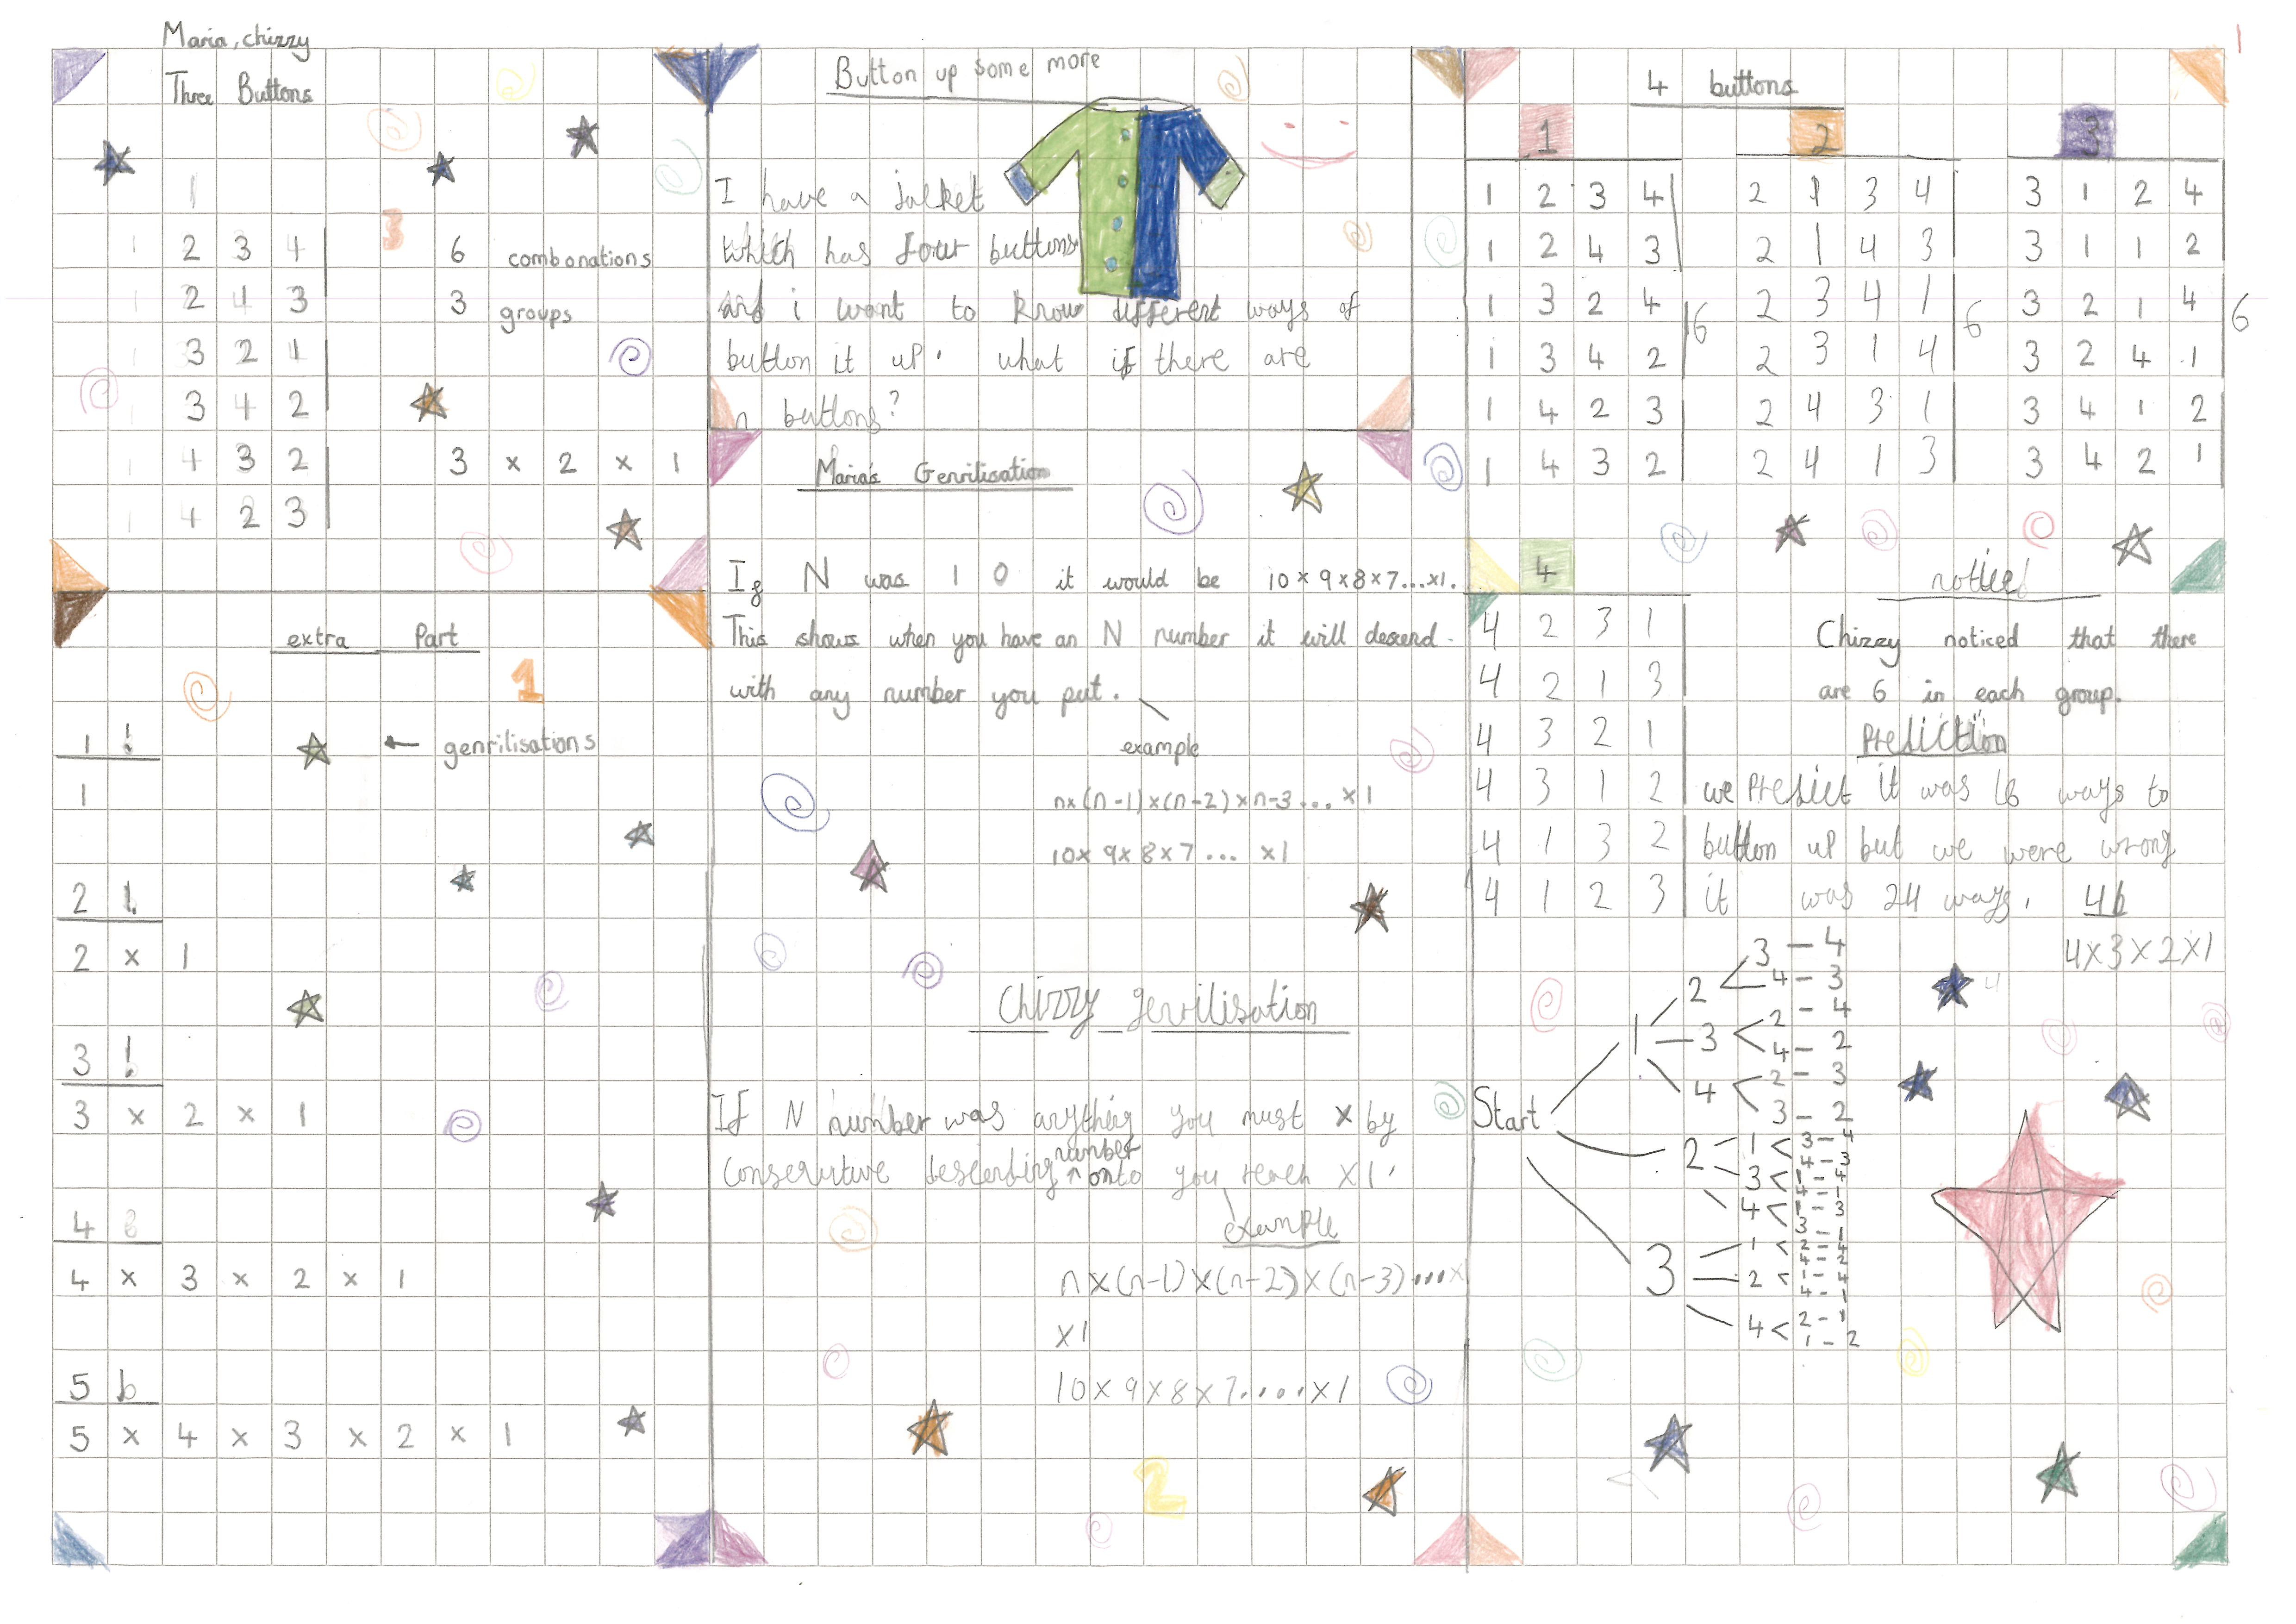 Maria, chizzy
Three Buttons
1
2 3 4
2 4 3
3 2 4
3 4 2
4 3 2
4 2 3
3
6 combonations
3 groups
3 x 2 x 1
extra Part
1
← genrilisations
1 !
1
2 !
2 x 1
3 !
3 x 2 x 1
4 !
4 x 3 x 2 x 1
5 !
5 x 4 x 3 x 2 x 1
Button up some more
I have a jacket
which has four buttons
and i want to know different ways of
button it up. what if there are
n buttons?
Maria's Genrilisation
If N was 10 it would be 10x9x8x7...x1.
This shows when you have an N number it will descend
with any number you put.
example
nx(n-1)x(n-2)xn-3...x1
10x9x8x7...x1
Chizzy genrilisation
If N number was anything you must x by
number
consecutive descending ^ onto you reach x1.
example
nx(n-1)x(n-2)x(n-3)....x
x1
10x9x8x7.....x1
2
1
4 buttons
1 2 3
1 2 3 4
1 2 4 3
1 3 2 4
1 3 4 2
1 4 2 3
1 4 3 2
6
2 1 3 4
2 1 4 3
2 3 4 1
2 3 1 4
2 4 3 1
2 4 1 3
6
3 1 2 4
3 1 1 2
3 2 1 4
3 2 4 1
3 4 1 2
3 4 2 1
6
4
4 2 3 1
4 2 1 3
4 3 2 1
4 3 1 2
4 1 3 2
4 1 2 3
noticed
Chizzy noticed that there
are 6 in each group.
Prediction
we Predict it was 16 ways to
button up but we were wrong
it was 24 ways. 4b
4x3x2x1
Start
1
2 < 3 - 4
4 - 3
3 < 2 - 4
4 - 2
4 < 2 - 3
3 - 2
2
1 < 3 - 4
4 - 3
3 < 1 - 4
4 - 1
4 < 1 - 3
3 - 1
3
1 < 2 - 4
4 - 2
2 < 1 - 4
4 - 1
4 < 2 - 1
1 - 2